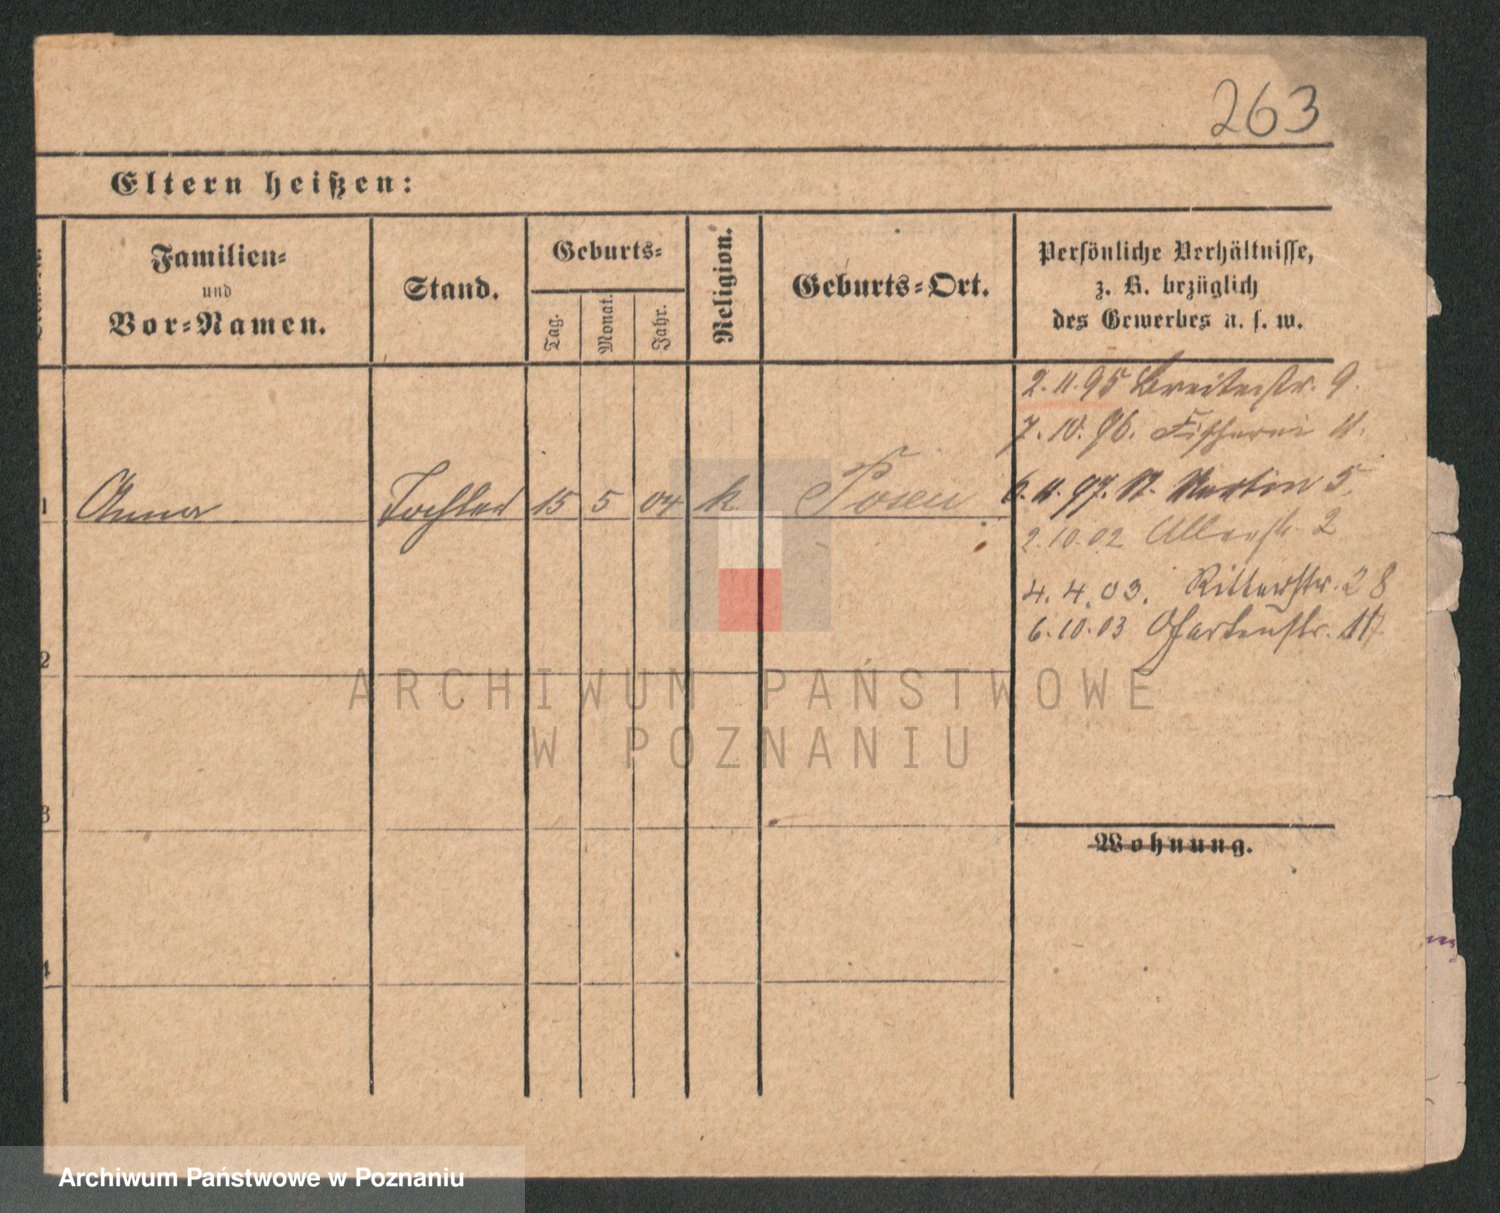 263
Eltern heißen:
Familien=
und
Vor=Namen.
Stand.
Geburts=
Tag.
Monat.
Jahr.
Religion.
Geburts=Ort.
Persönliche Verhältnisse,
z. B. bezüglich
des Gewerbes u. s. w.
2. 11. 95 Breitestr. 9.
7. 10. 96. Fischerei 11.
1 Anna Tochter 15 5 04 k Posen
6. 11. 97. St. Martin 5.
2. 10. 02 2
4. 4. 03. Ritterstr. 28
6. 10. 03 Gartenstr.
2
3
Wohnung.
4
ARCHIWUM PAŃSTWOWE
W POZNANIU
Archiwum Państwowe w Poznaniu